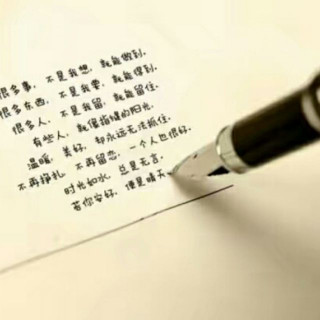 很多事，不是我想，就能做到．
很多东西，不是我要，就能得到．
很多人，不是我留，就能留住．
有些人，就像指缝的阳光，
温暖，美好，却永远无法抓住．
不再挣扎，不再留恋，一个人也很好．
时光如水，总是无言．
若你安好，便是晴天．